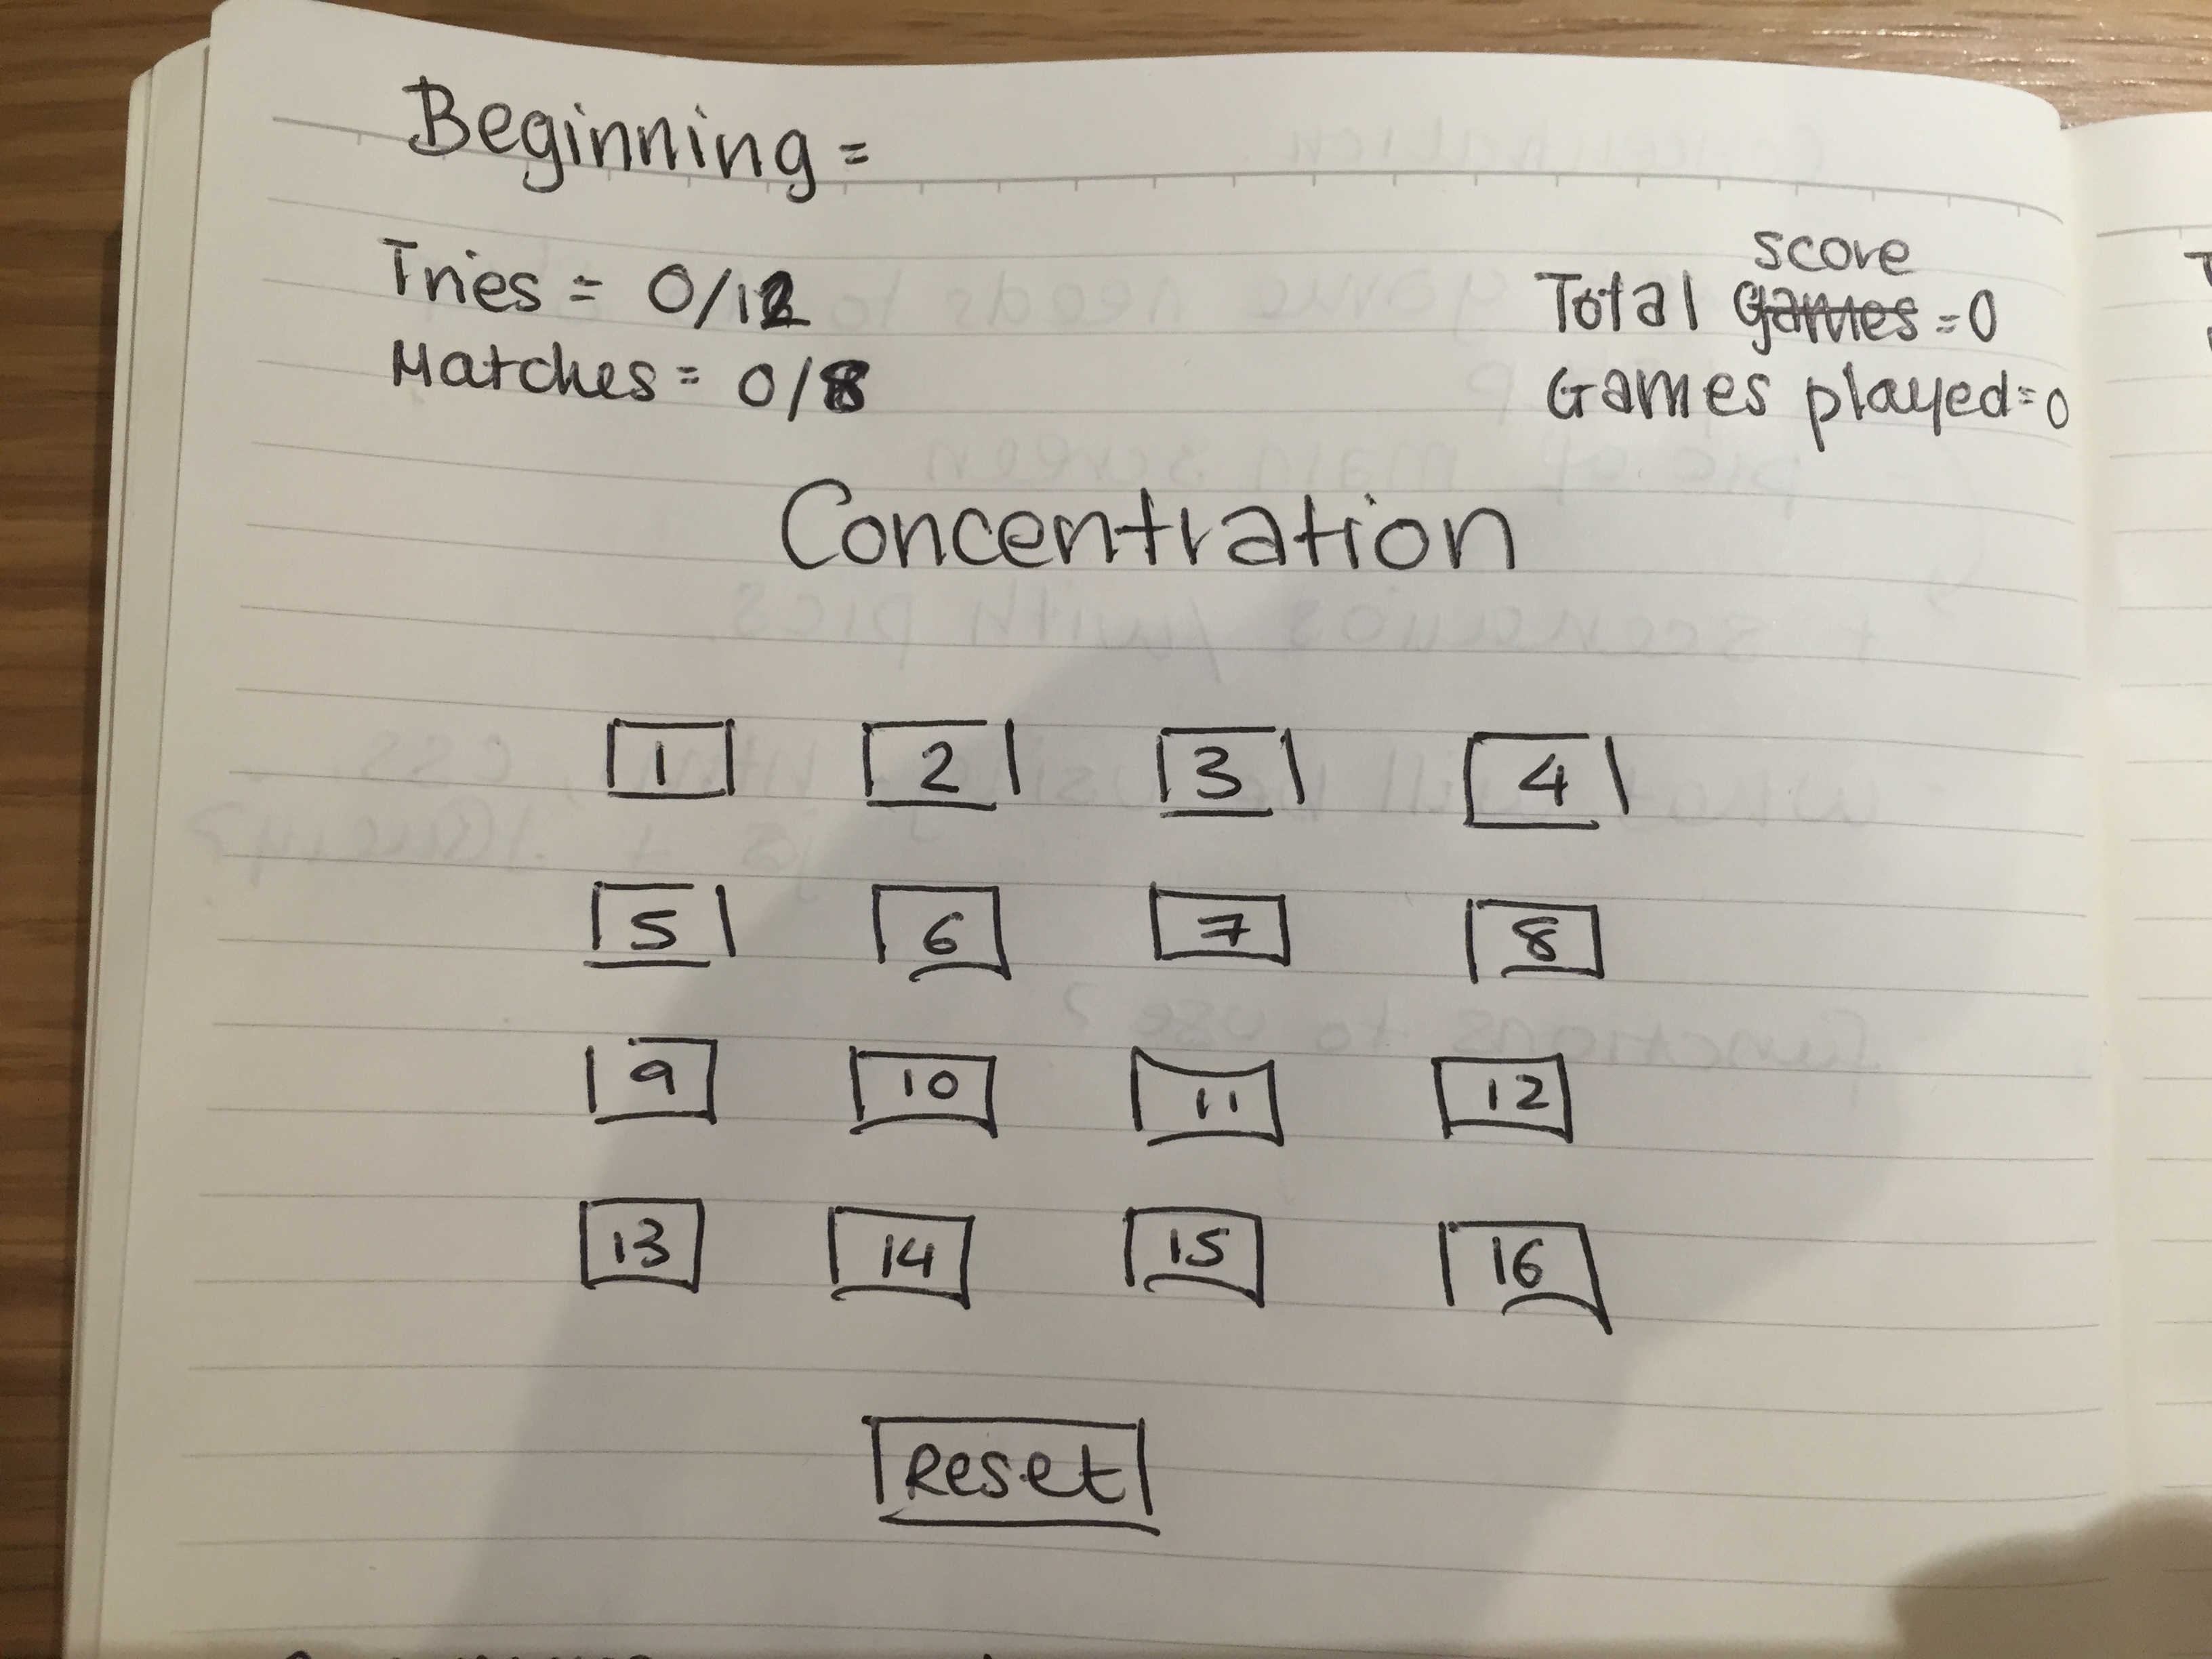 Beginning =
Tries = 0/12
Matches = 0/8
score
Total games = 0
Games played = 0
Concentration
1 2 3 4
5 6 7 8
9 10 11 12
13 14 15 16
Reset